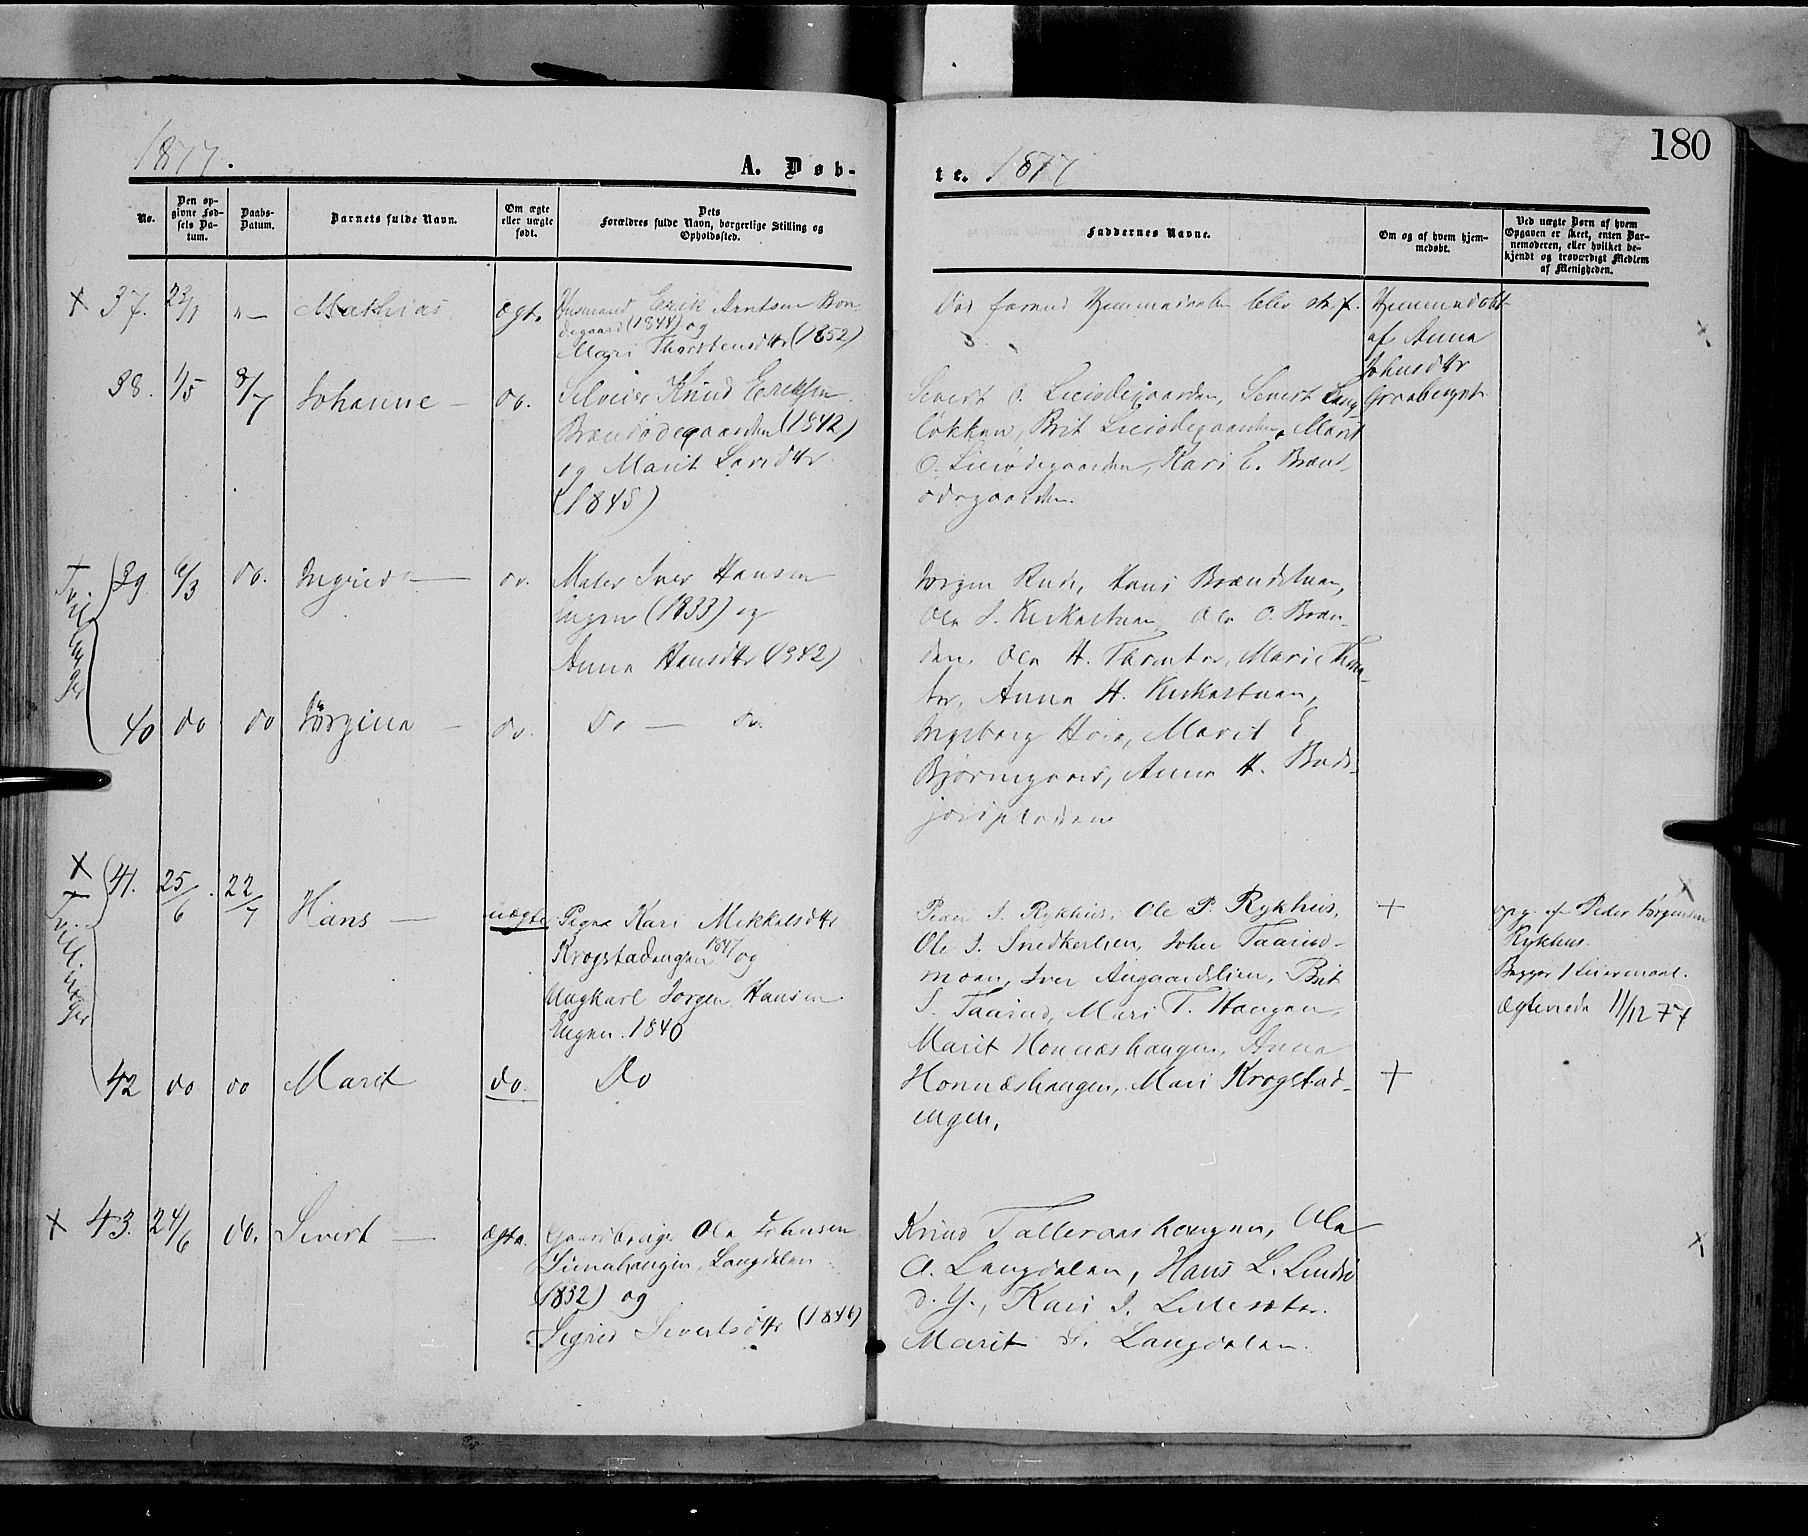 180
1877.
A. Døb-
te. 1877
No.
Den op-
givne Fød-
sels Da-
tum.
Daabs-
Datum.
Barnets fulde Navn.
Om ægte
eller uægte
født.
Dets
Forældres fulde Navn, borgerlige Stilling og
Opholdssted.
Faddernes Navne.
Om og af hvem hjem-
medøbt.
Ved uægte Børn af hvem
Opgaven er skeet, enten Bar-
nemoderen, eller hvilket be-
kjendt og troværdigt Medlem
af Menigheden.
+ 37. Mathias ægte Husmand Erik Arntsen Bøn-
degaard (1844) og
Mari Thorstensdtr (1852)
Død forend Hjemmedaaben blev st. f.
Hjemmedøbt
af Anna
Johnsdtr
Graaberget
38. 1/5 8/7 Johanne — do. Selveier Knud Eriksen
Brændødegaarden (1842)
og Marit
(1845)
Sivert O. Lieødegaarden, Sivert Lang-
løkken, Brit Lieødegaarden, Marit
O. Lieødegaarden, Kari E. Brænd-
ødegaarden.
Tvillinger
39. 6/3 do. Ingrid — do. Maler Iver Hansen
Engen (1833) og
Anna Hansdtr (1842)
Jørgen Rude, Hans Brændstuen,
Ole J. Kirkestuen, Ole O. Bræn-
den, Ole H. Tromter, Marie Trom-
ter, Anna H. Kirkestuen,
Ingeborg Marit E
Bjørnegaard, Anna H.
40 do do Jørgine — do. Do — do.
+ + Tvillinger
41. 25/6. 22/7 Hans — uægte Pigen Kari Mikkelsdtr
Krogstadengen 1847 og
Ungkarl Jørgen Hansen
Engen. 1840
Peder J. Rykhus, Ole P. Rykhus,
Ole J. Snedkerlien, Joher Taarud-
moen, Iver Augaardslien, Brit
J. Taarud, Mari T. Haugen,
Marit Honnæshaugen, Anna
Honnæshaugen, Mari Krogstad-
engen.
+
opg. af Peder Jørgensen
Rykhus.
Begges 1 Leiermaal.
Ægteviede 11/12 77
42 do do Marit do. Do
+
+ 43. 24/6 do. Sivert — ægte. Gaardbruger Ole Johnsen
Langdalen
(1832) og
Sigrid Sivertsdtr (1846)
Knud Tolleraashaugen, Ole
A. Langdalen, Hans L. Lindsø
d. Y., Kari J. Lillesæter.
Marit S. Langdalen.